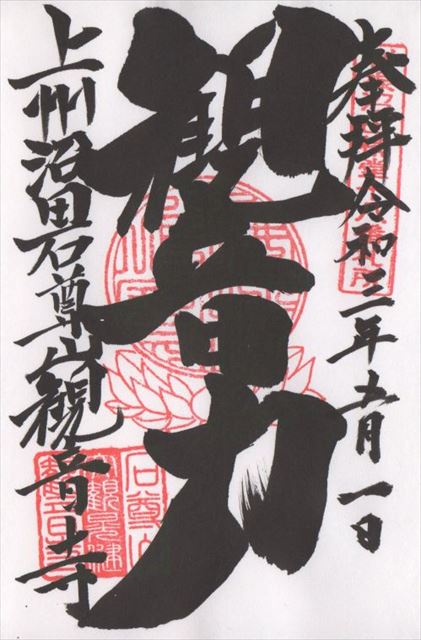 奉拝 令和三年五月一日
観音力
上州沼田石尊山観音寺